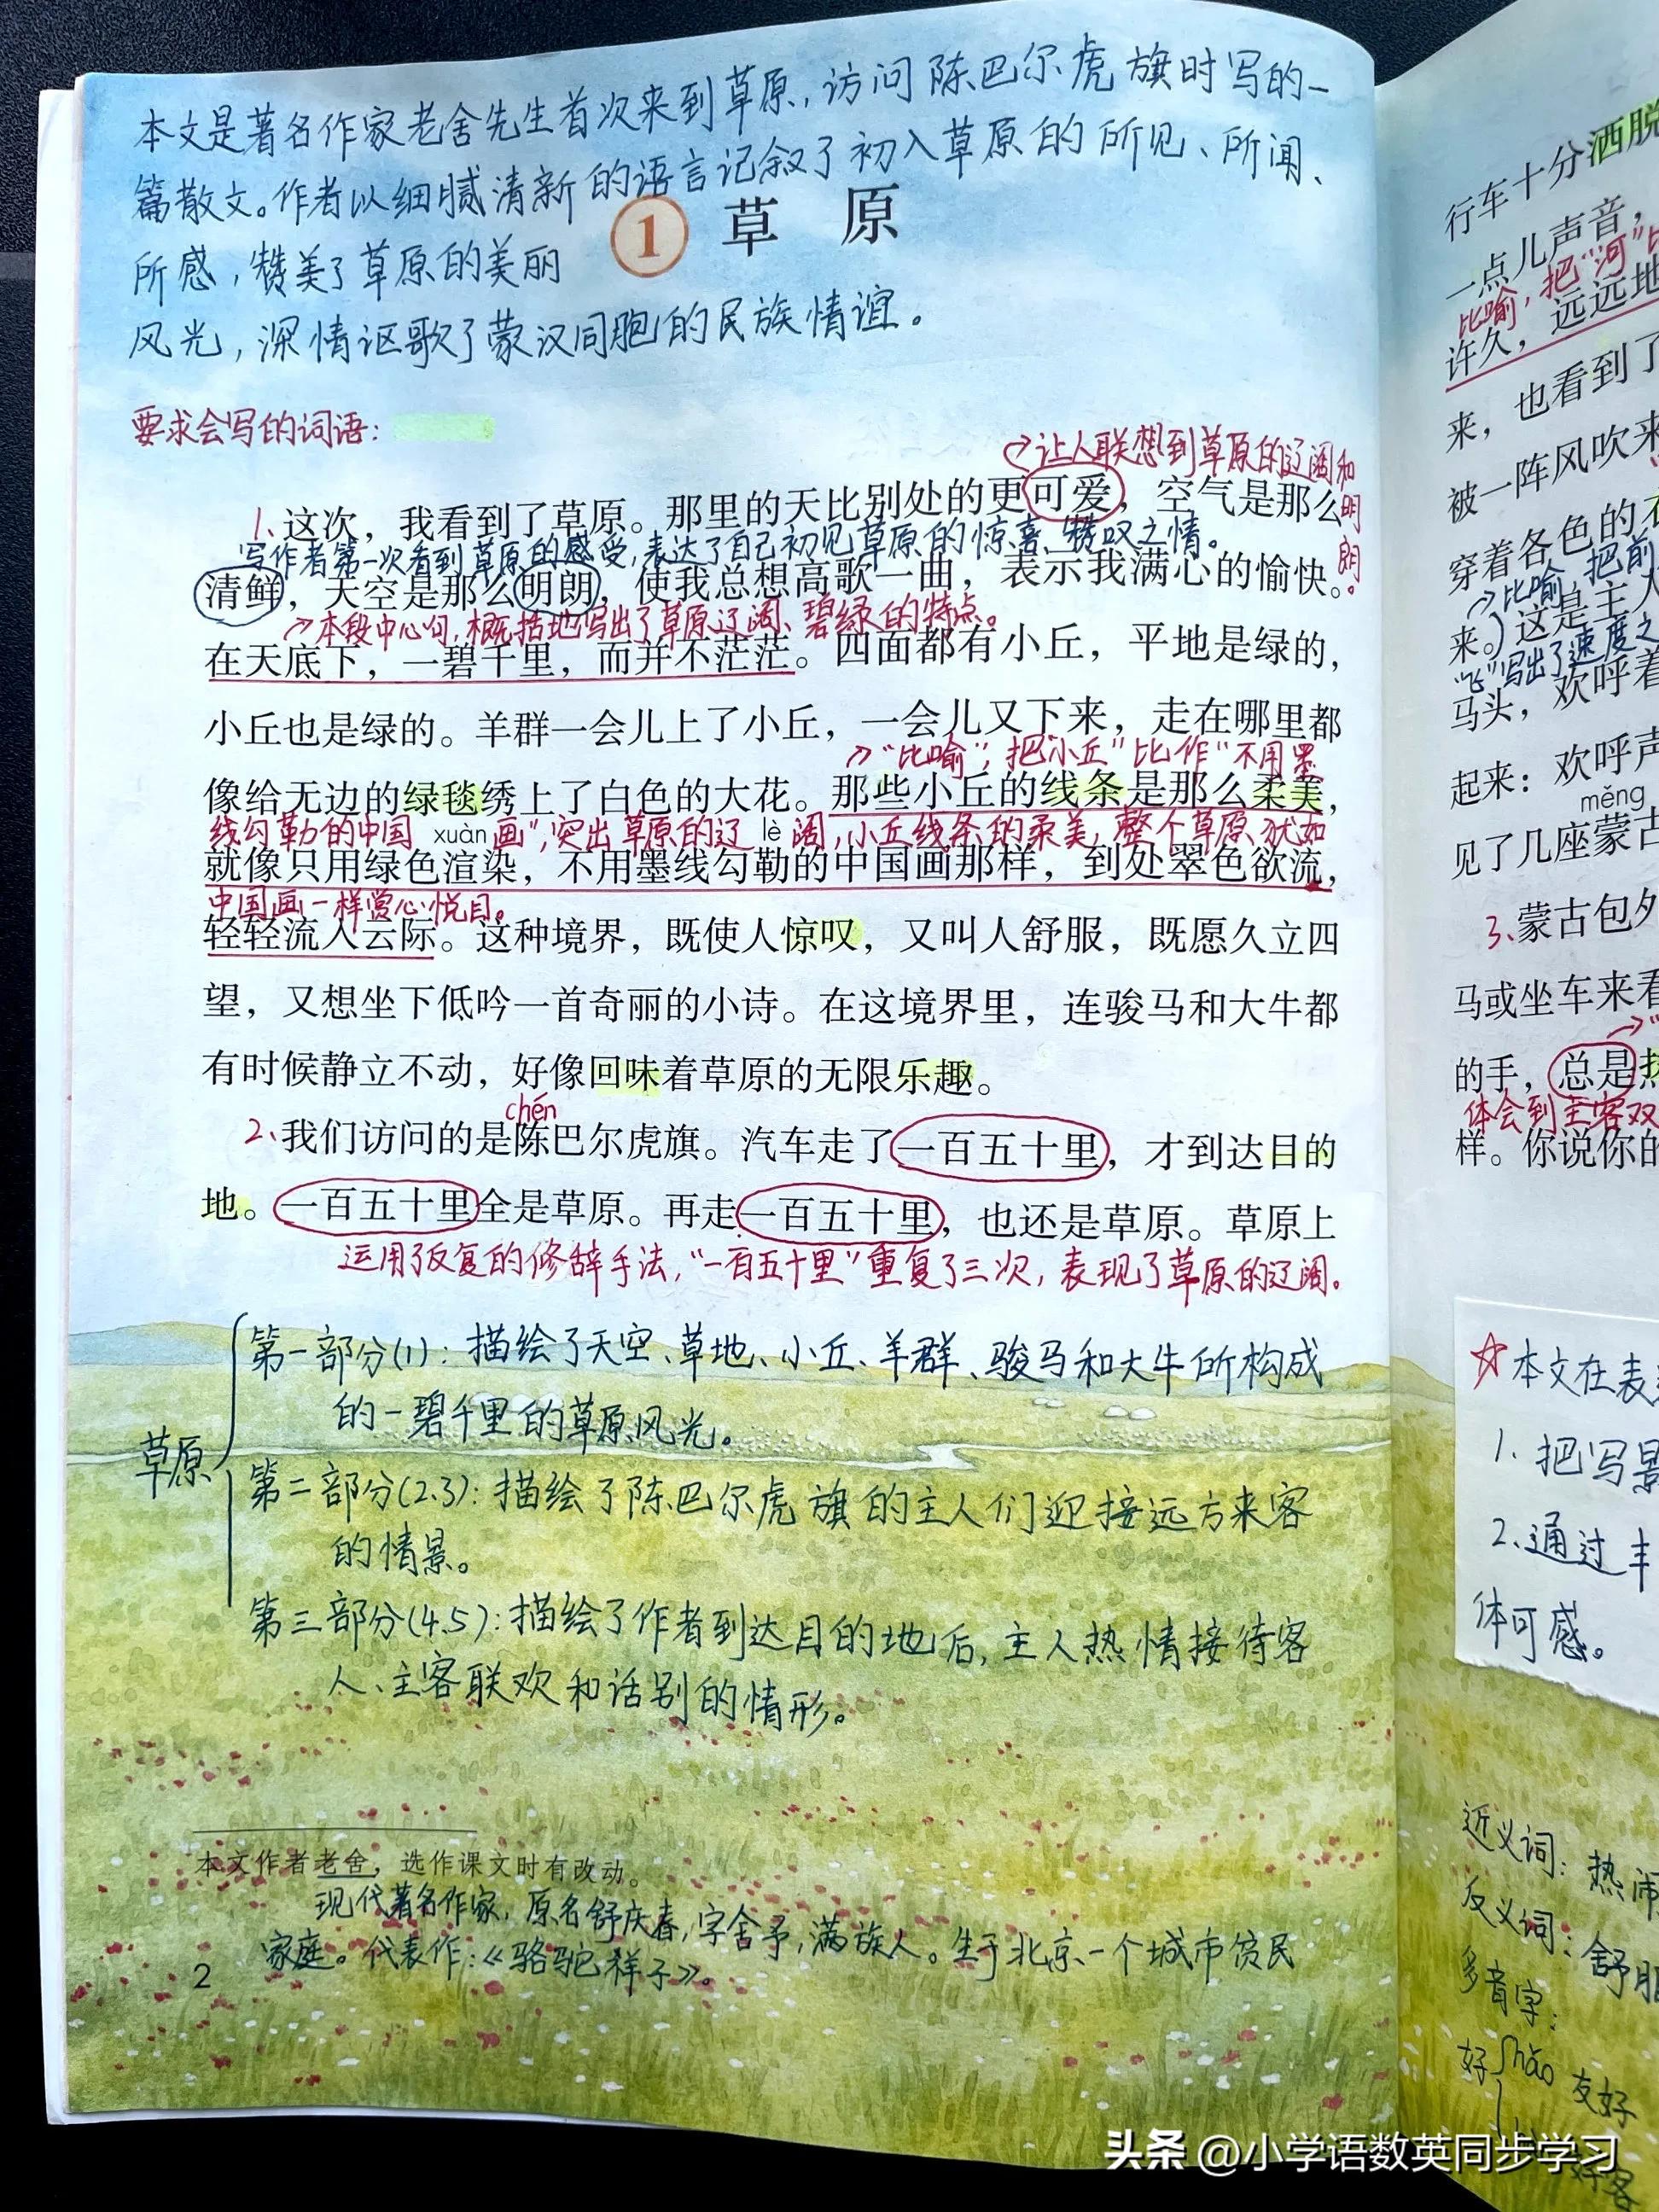 本文是著名作家老舍先生首次来到草原，访问陈巴尔虎旗时写的一
篇散文。作者以细腻清新的语言记叙了初入草原的所见、所闻、
① 草 原
所感，赞美了草原的美丽
风光，深情讴歌了蒙汉同胞的民族情谊。
要求会写的词语：
→让人联想到草原的辽阔和明朗。
1.这次，我看到了草原。那里的天比别处的更可爱，空气是那么
写作者第一次看到草原的感受，表达了自己初见草原的惊喜、赞叹之情。
清鲜，天空是那么明朗，使我总想高歌一曲，表示我满心的愉快。
→本段中心句，概括地写出了草原辽阔、碧绿的特点。
在天底下，一碧千里，而并不茫茫。四面都有小丘，平地是绿的，
小丘也是绿的。羊群一会儿上了小丘，一会儿又下来，走在哪里都
→“比喻”，把“小丘”比作“不用墨
像给无边的绿毯绣上了白色的大花。那些小丘的线条是那么柔美，
线勾勒的中国画”，突出草原的辽阔，小丘线条的柔美，整个草原犹如
xuàn lè
就像只用绿色渲染，不用墨线勾勒的中国画那样，到处翠色欲流，
中国画一样赏心悦目。
轻轻流入云际。这种境界，既使人惊叹，又叫人舒服，既愿久立四
望，又想坐下低吟一首奇丽的小诗。在这境界里，连骏马和大牛都
有时候静立不动，好像回味着草原的无限乐趣。
chén
2、我们访问的是陈巴尔虎旗。汽车走了一百五十里，才到达目的
地。一百五十里全是草原。再走一百五十里，也还是草原。草原上
运用了反复的修辞手法，“一百五十里”重复了三次，表现了草原的辽阔。
草原
第一部分(1)：描绘了天空、草地、小丘、羊群、骏马和大牛所构成
的一碧千里的草原风光。
第二部分(2.3)：描绘了陈巴尔虎旗的主人们迎接远方来客
的情景。
第三部分(4.5)：描绘了作者到达目的地后，主人热情接待客
人、主客联欢和话别的情形。
本文作者老舍，选作课文时有改动。
现代著名作家，原名舒庆春，字舍予，满族人。生于北京一个城市贫民
家庭。代表作：《骆驼祥子》。
2
行车十分洒脱
一点儿声音，
比喻，把“河”比
许久，远远地
来，也看到了
被一阵风吹来
穿着各色的衣
→比喻，把前
来。）这是主人
“飞”写出了速度之
马头，欢呼着
起来：欢呼声
měng
见了几座蒙古
3、蒙古包外
马或坐车来看
的手，总是热
体会到主客双
样。你说你的
☆本文在表
1. 把写景
2.通过丰
体可感。
近义词：热闹
反义词：舒服
多音字：
好 hǎo 友好
好客
头条 @小学语数英同步学习